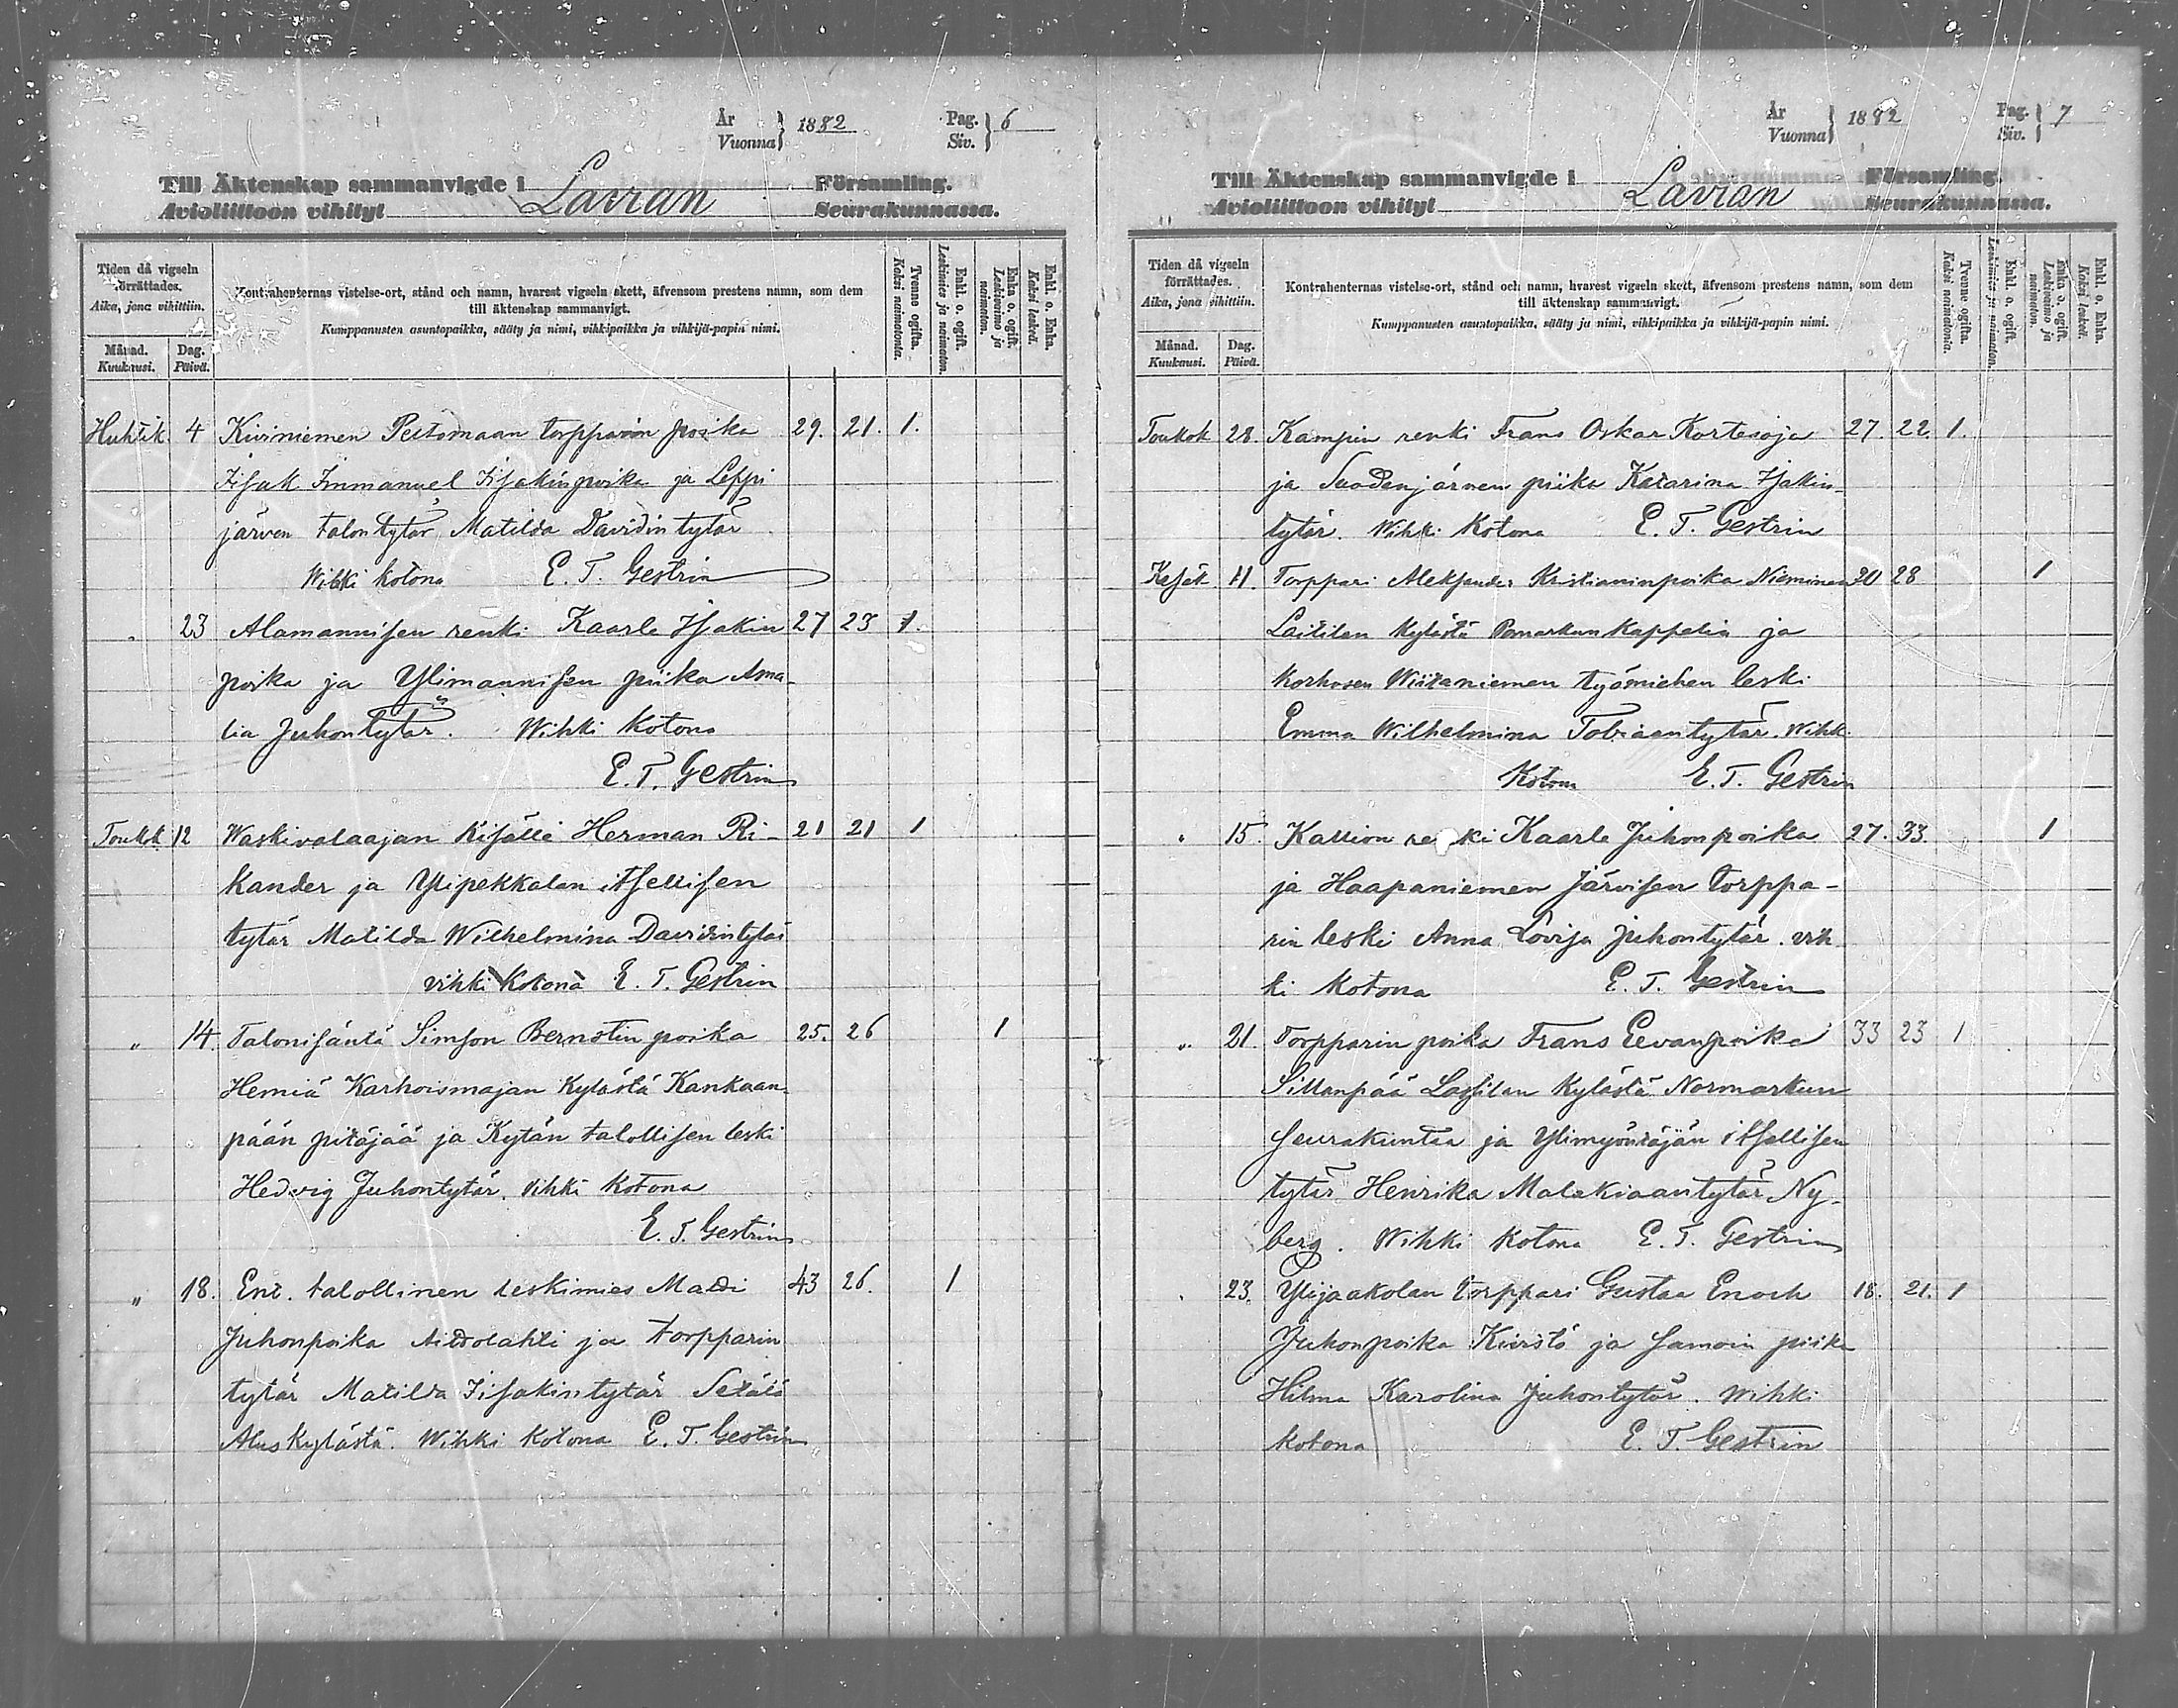 År
Vuonna } 1882
Pag.
Siv. } 6
Till Äktenskap sammanvigde i Lavian Församling.
Avioliittoon vihityt Seurakunnassa.
Tiden då vigseln förrättades.
Aika, jona vihittiin.
Månad.
Kuukausi.
Dag.
Päivä.
Kontrahenternas vistelse-ort, stånd och namn, hvarest vigseln skett, äfvensom prestens namn, som dem
till äktenskap sammanvigt.
Kumppanusten asuntopaikka, sääty ja nimi, vihkipaikka ja vihkijä-papin nimi.
Tvenne ogifta.
Kaksi naimatonta.
Enkl. o. ogift.
Leskimies ja naimaton.
Enka o. ogift.
Leskivaimo ja naimaton.
Enkl. o. Enka.
Kaksi leskeä.
Huhtik. 4 Kiviniemen Peltomaan torpparin poika 29. 21. 1.
Iisak Immanuel Iisakinpoika ja Leppi
järven talontytär Matilda Davidintytär
Wihki kotona E. T. Gestrin
" 23 Alamannisen renki Kaarle Isakin 27 23 1.
poika ja Ylimannisen piika Ama-
lia Juhontytär. Wihki Kotona
E. T. Gestrin
Toukok 12 Waskivalaajan Kisälli Herman Ri- 21 21 1
kander ja Ylipekkalan itsellisen
tytär Matilda Wilhelmina Davidintytär
vihki Kotona E. T. Gestrin
" 14. Talonisäntä Simson Bernstin poika 25. 26 1
Hemiä Karhoismajan Kylästä Kankaan-
pään pitäjää ja Kytän talollisen leski
Hedvig Juhontytär. Vihki Kotona
E. T. Gestrin
" 18. Ent. talollinen leskimies Matti 43 26. 1
Juhonpoika Aittolahti ja torpparin
tytär Matilda Iisakintytär Setälä
Aluskylästä. Wihki Kotona E. T. Gestrin
År
Vuonna } 1882
Pag.
Siv. } 7
Till Äktenskap sammanvigde i Lavian Församling.
Avioliittoon vihityt Seurakunnassa.
Tiden då vigseln förrättades.
Aika, jona vihittiin.
Månad.
Kuukausi.
Dag.
Päivä.
Kontrahenternas vistelse-ort, stånd och namn, hvarest vigseln skett, äfvensom prestens namn, som dem
till äktenskap sammanvigt.
Kumppanusten asuntopaikka, sääty ja nimi, vihkipaikka ja vihkijä-papin nimi.
Tvenne ogifta.
Kaksi naimatonta.
Enkl. o. ogift.
Leskimies ja naimaton.
Enka o. ogift.
Leskivaimo ja naimaton.
Enkl. o. Enka.
Kaksi leskeä.
Toukok 28. Kampin renki Frans Oskar Kortesoja 27. 22. 1.
ja Suodenjärven piika Katarina Isakin-
tytär. Wihki Kotona E. T. Gestrin
Kesäk. 11. Torppari Aleksander Kristianinpoika Nieminen 30 28 1
Laitilan Kylästä Pomarkun Kappelia ja
Korhosen Wiitaniemen työmiehen leski
Emma Wilhelmina Tobiaantytär. Wihki
Kotona E. T. Gestrin
" 15. Kallion renki Kaarle Juhonpoika 27. 33. 1
ja Haapaniemen Järvisen torppa-
rin leski Anna Lovisa Juhontytär. vih
ki Kotona E. T. Gestrin
" 21. Torpparin poika Frans Eevanpoika 33 23 1
Sillanpää Lassilan Kylästä Normarkun
seurakuntaa ja Ylimyöntäjän itsellisen
tytär Henrika Malakiaantytär Ny-
berg. Wihki Kotona E. T. Gestrin
" 23. Ylijaakolan torppari Gustaa Enoch 18. 21. 1
Juhonpoika Kivistö ja samoin piika
Hilma Karolina Juhontytär. Wihki
Kotona E. T. Gestrin